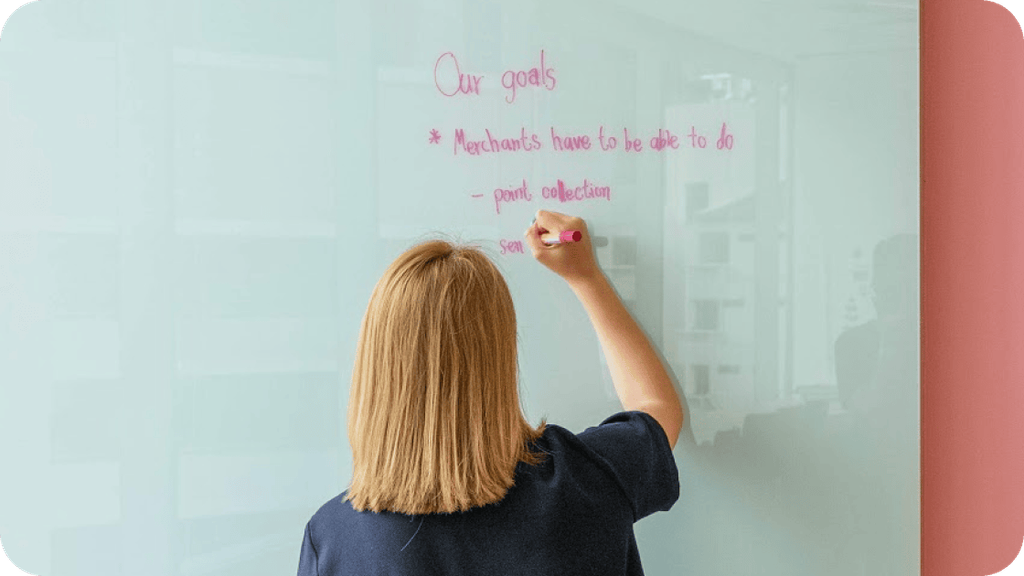 Our goals
* Merchants have to be able to do
- point collection
sen